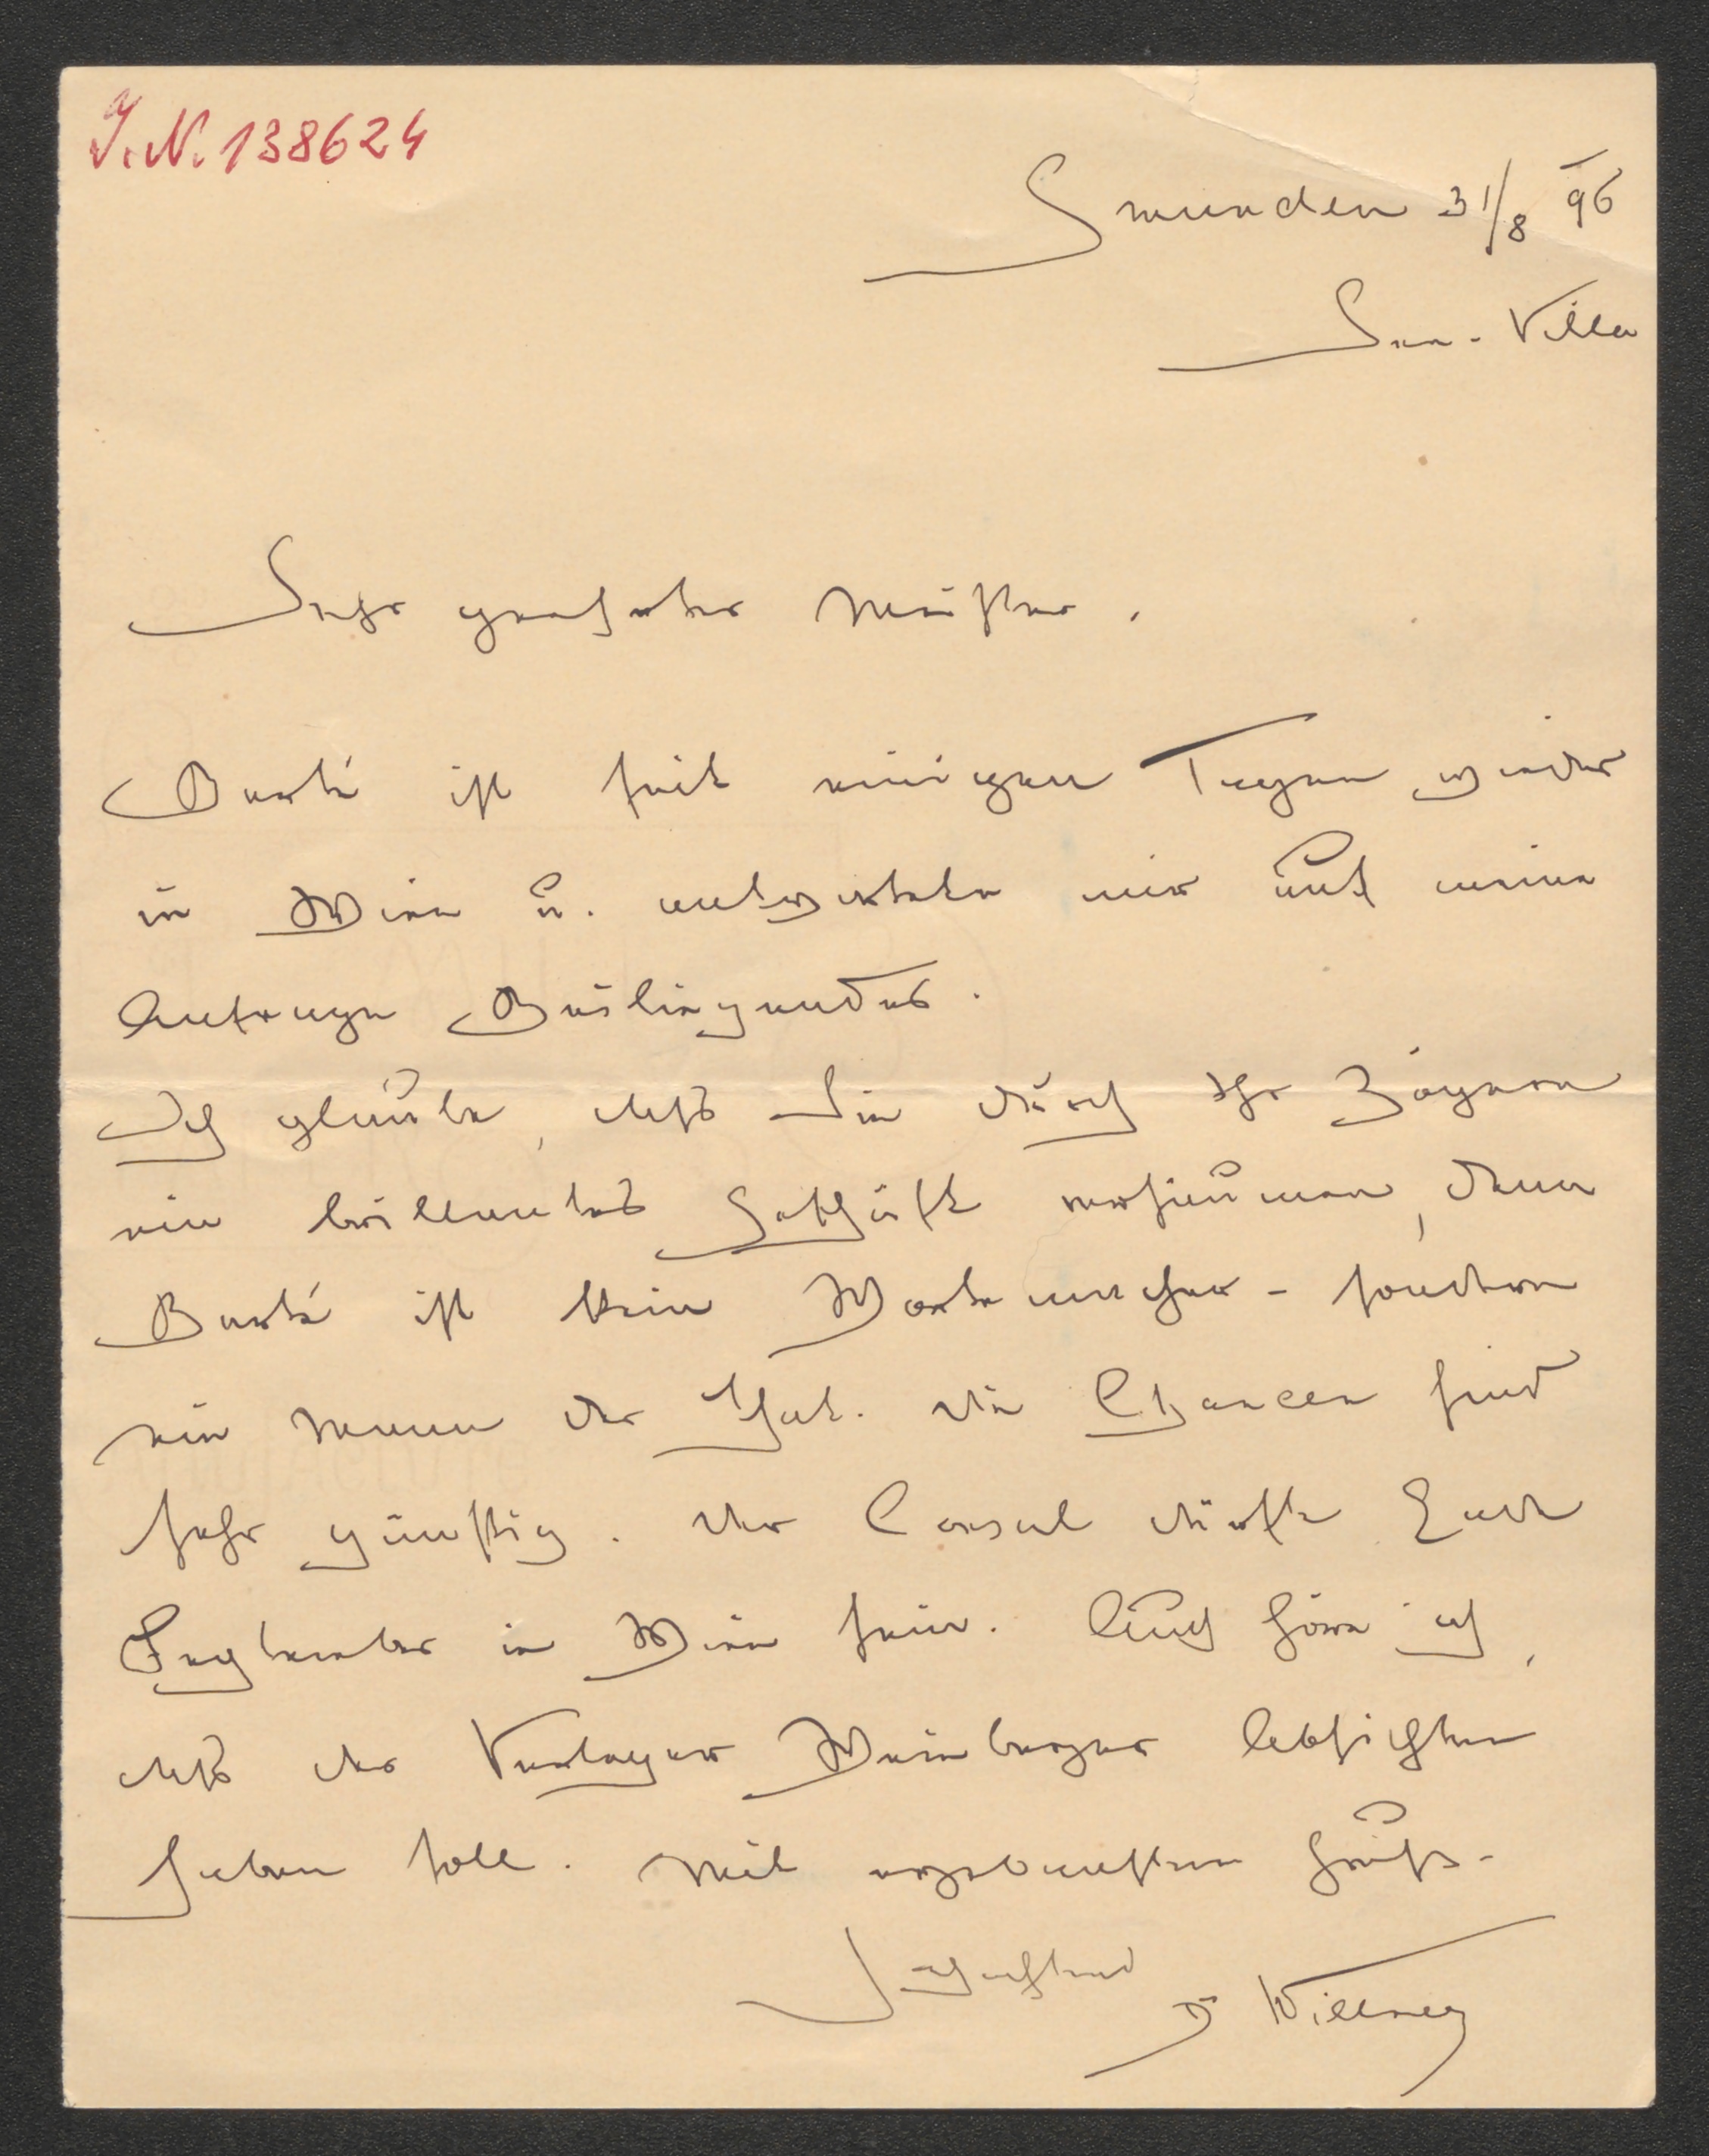 J.N. 138624
Gmunden 31/8 96
See-Villa
Sehr geehrter Meister,
Berté ist seit einigen Tagen wieder
in Wien u. antwortete mir auf meine
Anfrage Beiliegendes.
Ich glaube, daß Sie durch Ihr Zögern
ein brillantes Geschäft versäumen, denn
Berté ist kein Wortemacher - sondern
ein Mann der That. Die Chancen sind
sehr günstig. Der Consul dürfte Ende
September in Wien sein. Auch höre ich,
daß der Verleger Weinberger Absichten
haben soll. Mit ergebenstem Gruß.
Hochachtend
Dr Willner